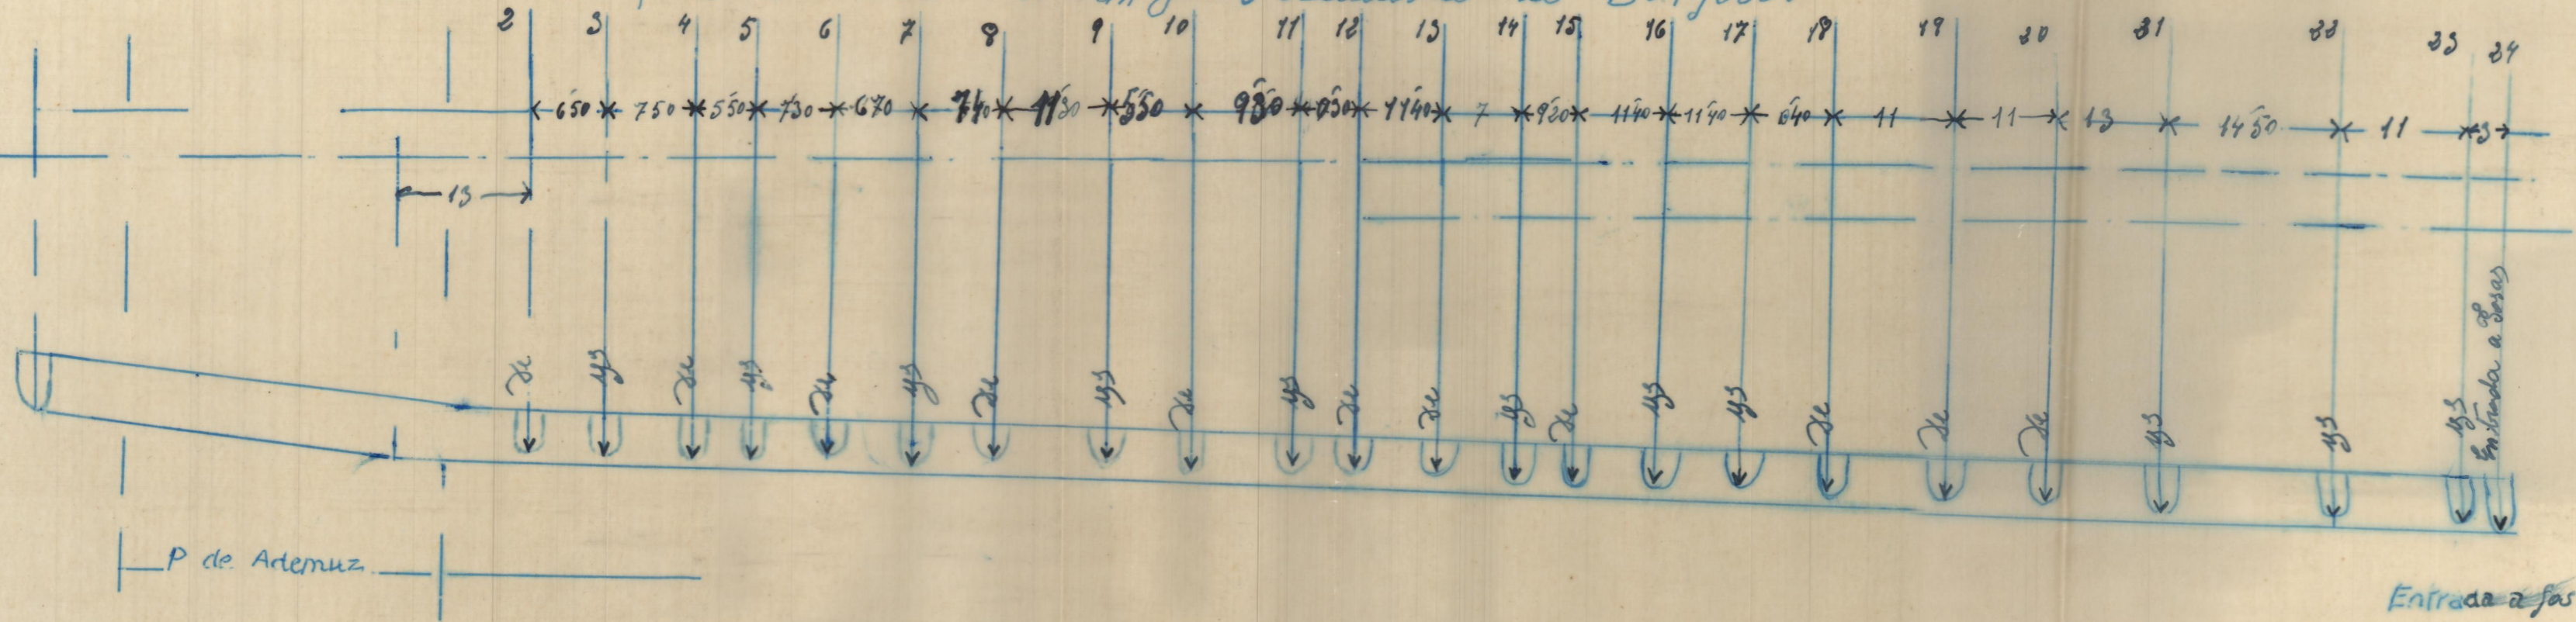 2 3 4 5 6 7 8 9 10 11 12 13 14 15 16 17 18 19 20 21 22 23 24
6'50 7'50 5'50 7'30 6'70 7'40 11'30 5'50 9'80 11'40 7 9'20 11'40 11'40 11 11 13 14'50 11 3
13
De yz De yz De yz De yz De yz De De yz De yz yz De De De yz yz yz Entrada a Fosas
P de Ademuz
Entrada a fos